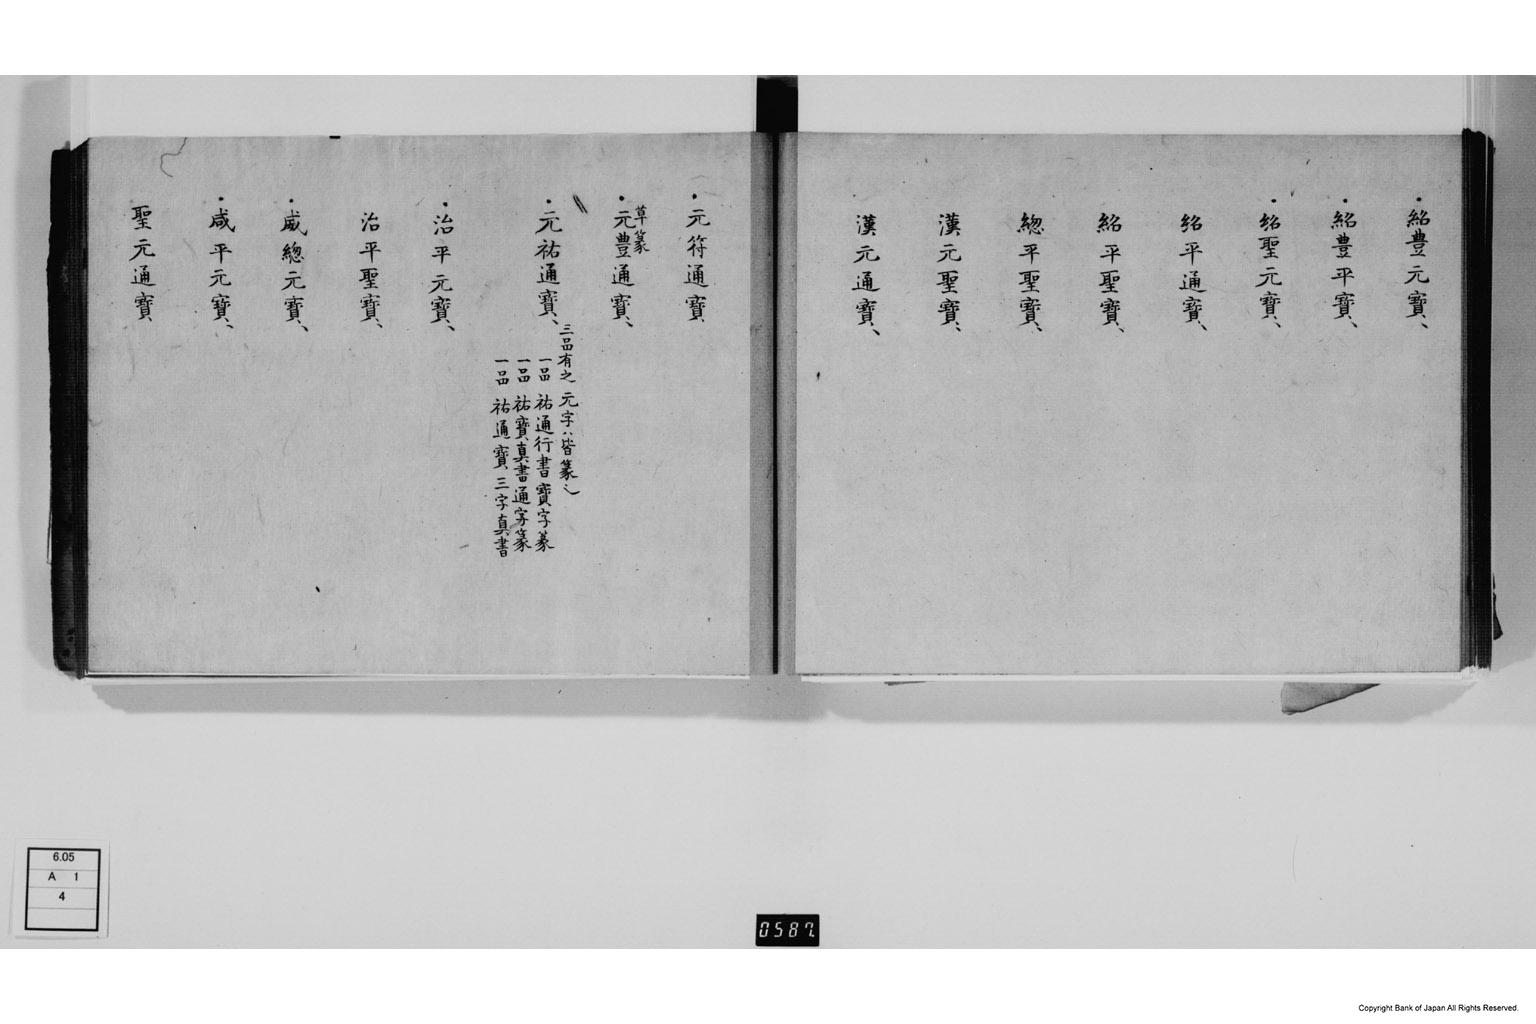 ・紹豊元寶、
・紹豊平寶、
・紹聖元寶、
紹平通寶、
紹平聖寶、
總平聖寶、
漢元聖寶、
漢元通寶、
・元符通寶
・元豊通寶、
草篆
・元祐通寶、
三品有之 元字ハ皆篆也
一品 祐通行書寶字篆
一品 祐寶真書通字篆
一品 祐通寶三字真書
・治平元寶、
治平聖寶、
・咸總元寶、
・咸平元寶、
聖元通寶
6.05
A 1
4
0587
Copyright Bank of Japan All Rights Reserved.